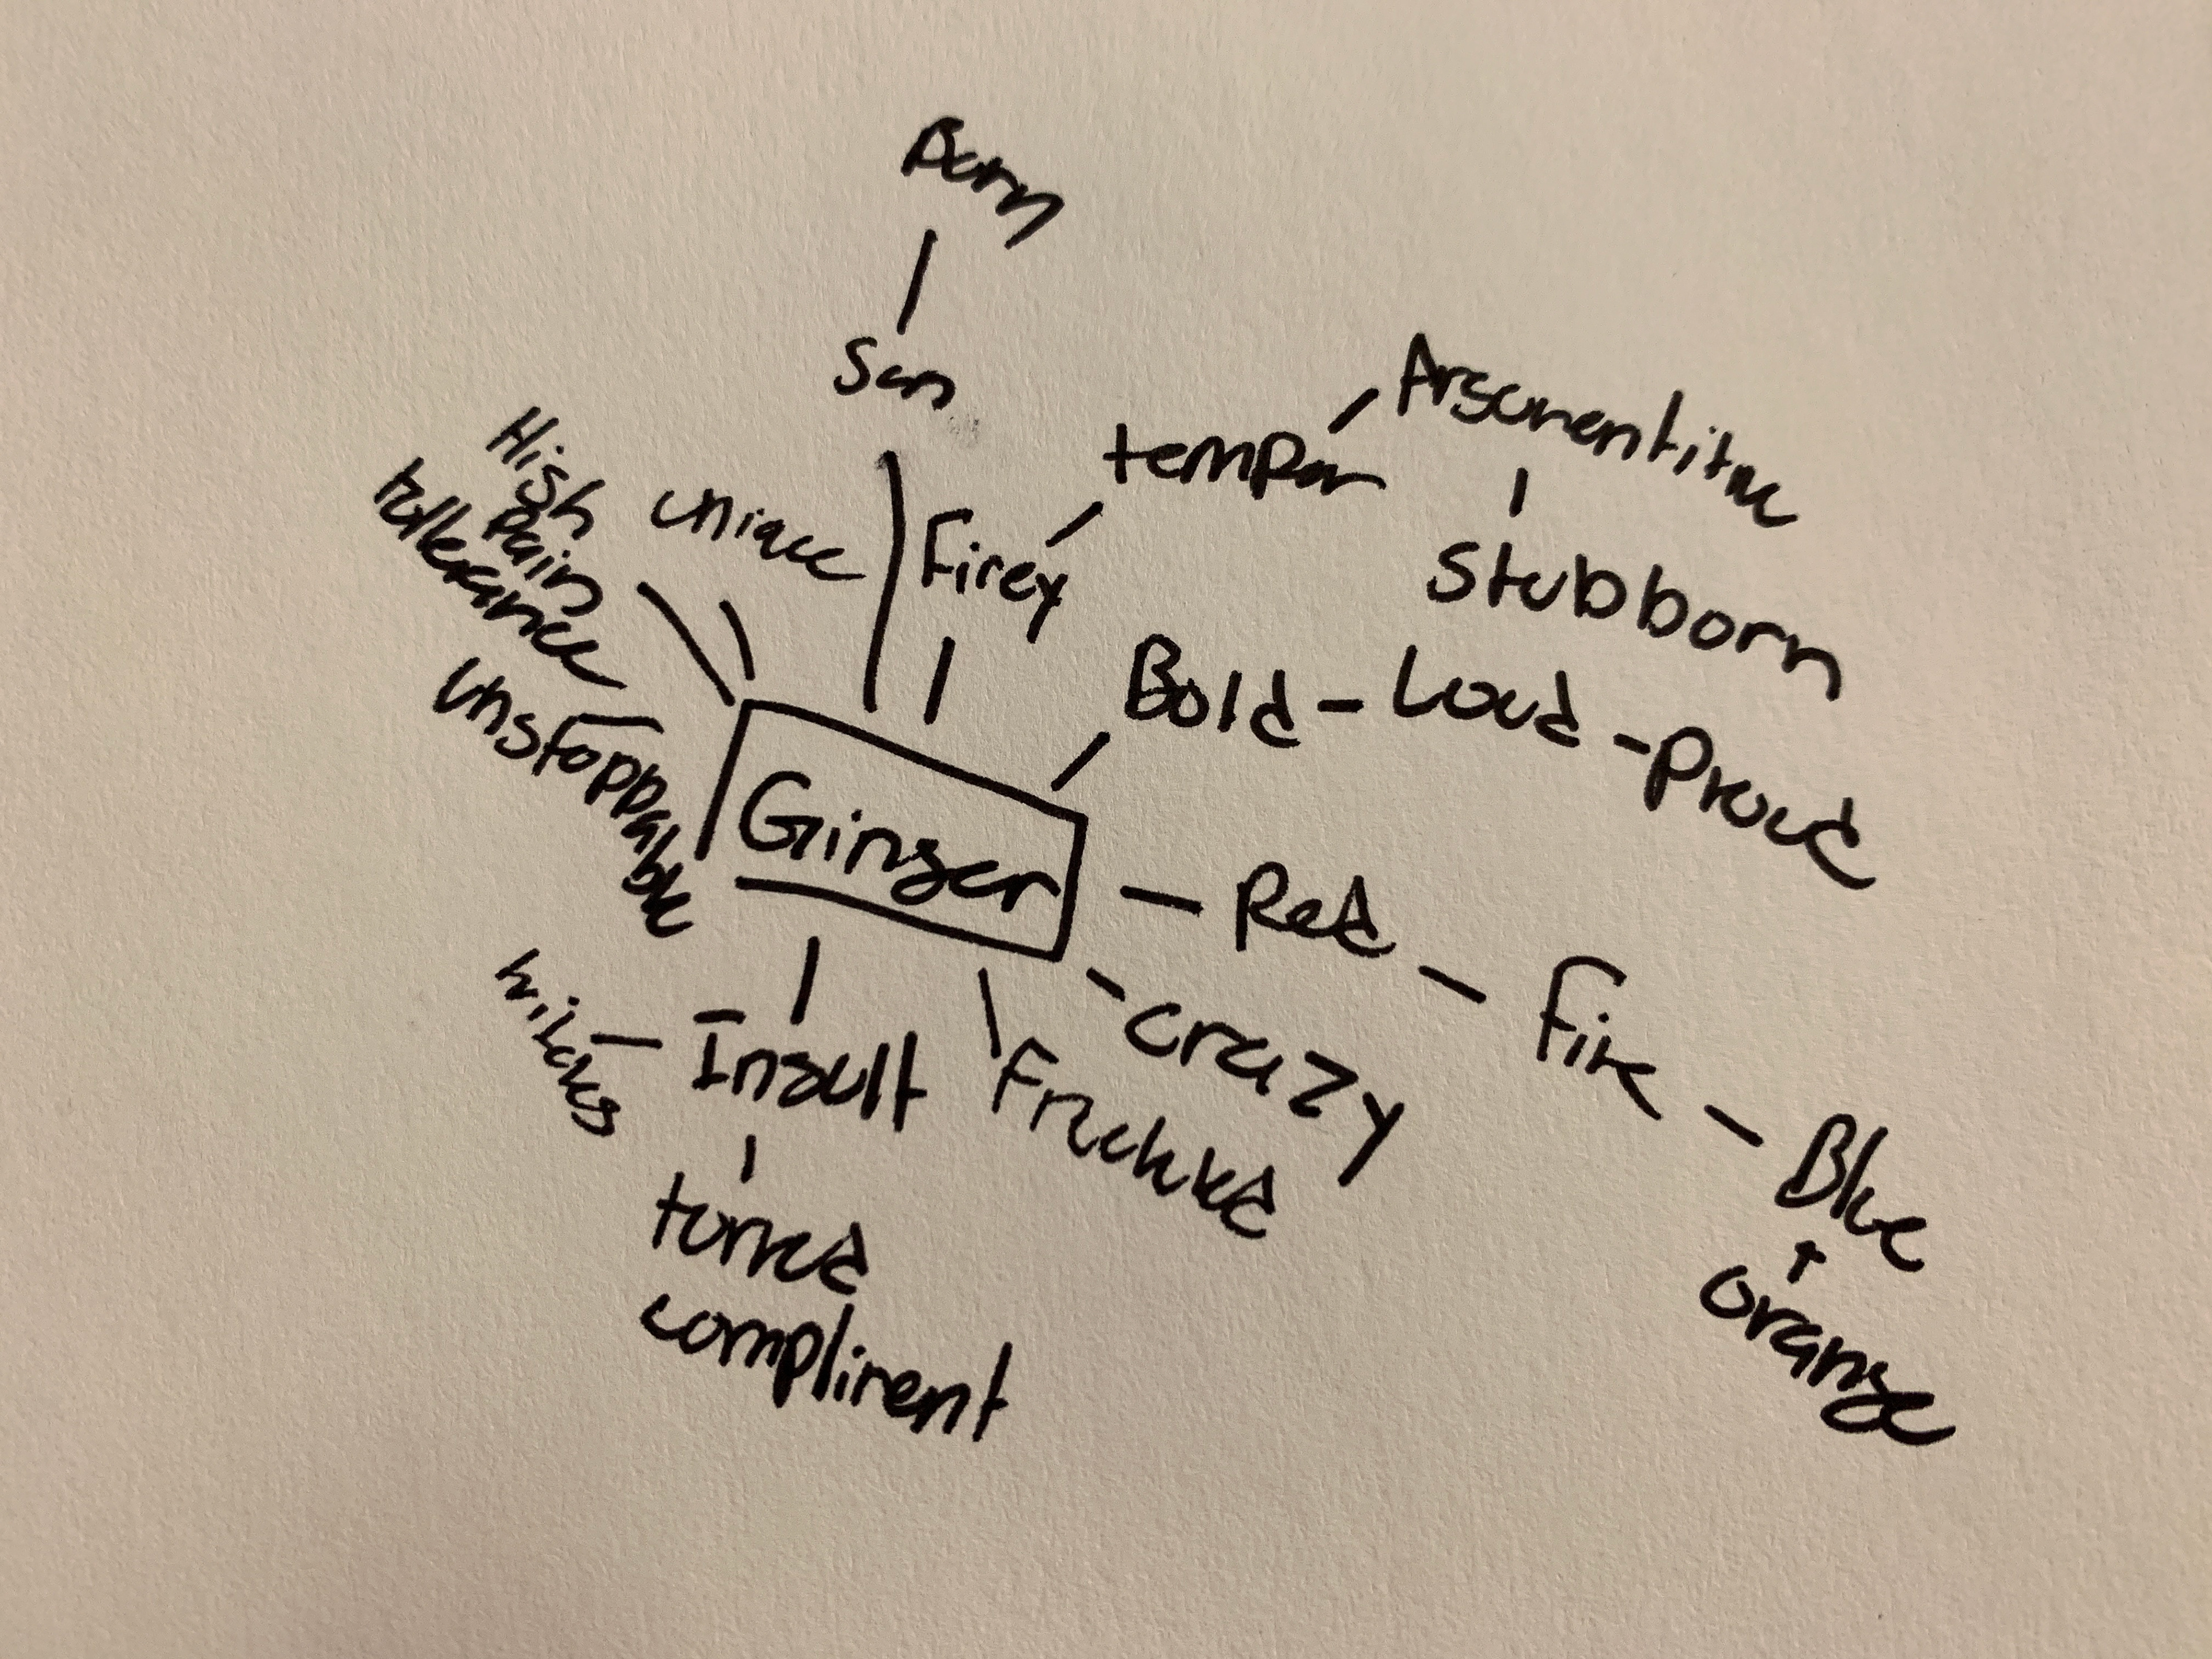 Burn
Sun
Argumentitve
temper
High
pain
tollerance
uniqce
Firey
Stubborn
Bold - Loud - Proud
unstoppable
Ginger
Red
Fire
crazy
Insult
Freckled
Blue
orange
turned
compliment